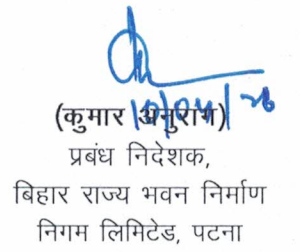 (कुमार अनुराग)
प्रबंध निदेशक,
बिहार राज्य भवन निर्माण
निगम लिमिटेड, पटना